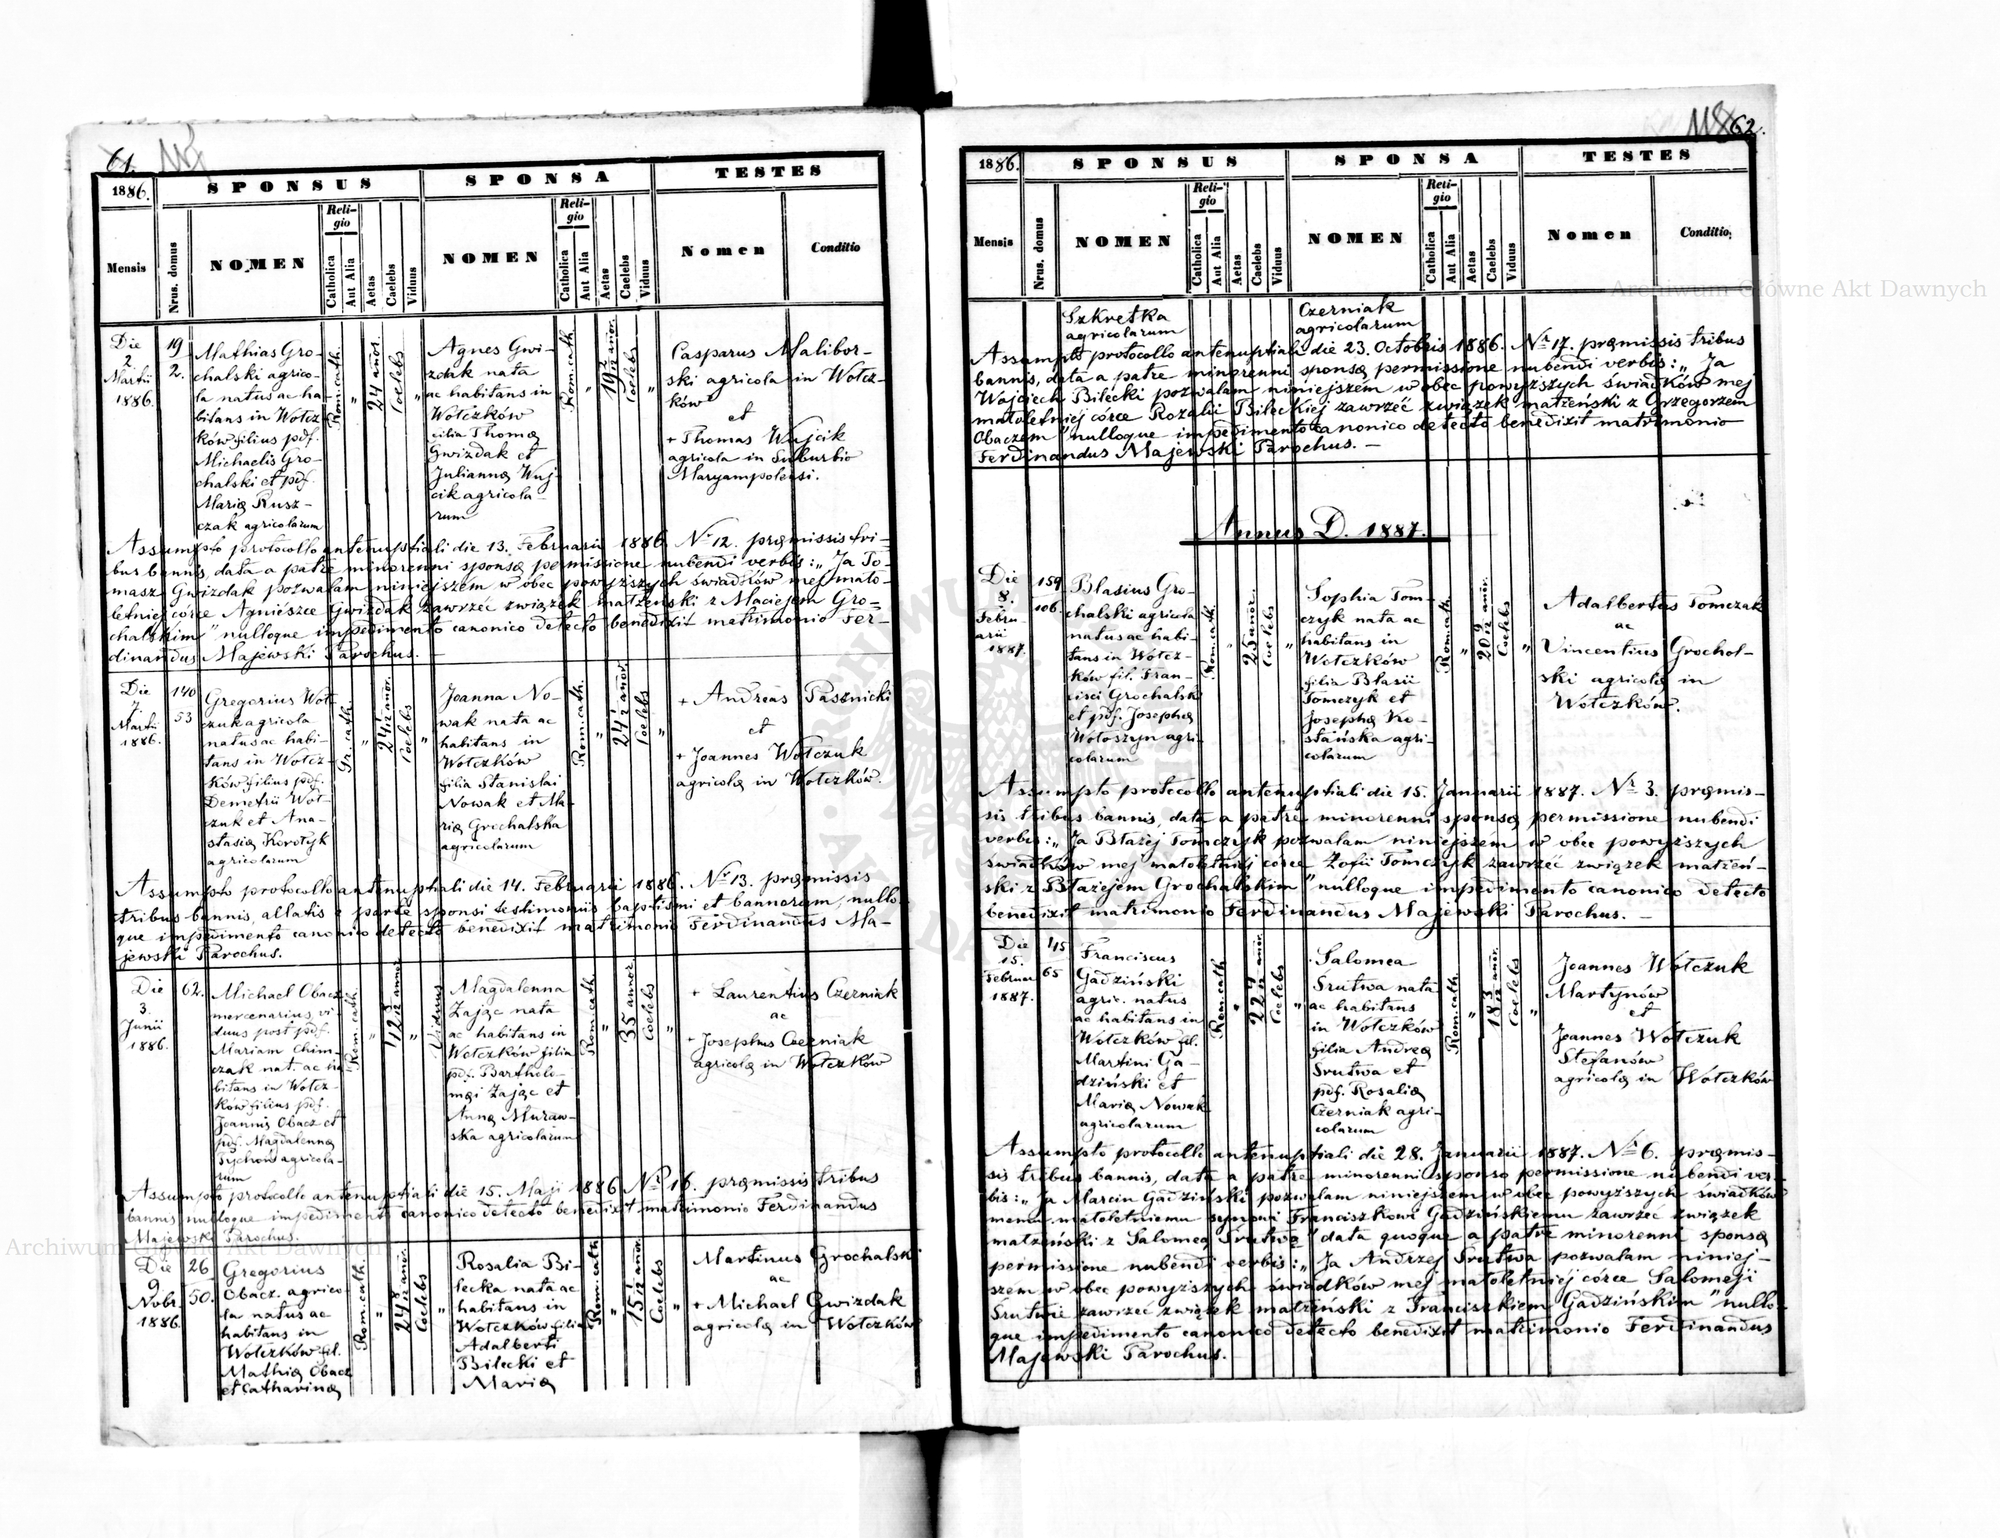 61.
1886.
SPONSUS
SPONSA
TESTES
Mensis
Nrus. domus
NOMEN
Religio
Catholica
Aut Alia
Aetas
Caelebs
Viduus
NOMEN
Religio
Catholica
Aut Alia
Aetas
Caelebs
Viduus
Nomen
Conditio
Die
2.
Martii
1886.
19
2.
Mathias Gro-
chalski agrico-
la natus ac ha-
bitans in Wołcz
ków filius pdf.
Michaelis Gro-
chalski et pdf.
Marię Rusz-
czak agricolarum
Rom. cath.
"
24 anor.
Coelebs
"
Agnes Gwi-
zdak nata
ac habitans in
Wołczków
filia Thomę
Gwizdak et
Juliannę Wuj-
cik agricola-
rum
Rom. cath.
"
Coelebs
"
Casparus Malibor-
ski agricola in Wołcz-
ków
et
+ Thomas Wujcik
agricola in Suburbio
Maryampolensi.
Assumpto protocollo antenuptiali die 13. Februarii 1886. Nr 12. pręmissis tri-
bus bannis, data a patre minorenni sponsę permissione nubendi verbis: „Ja To-
masz Gwizdak pozwalam niniejszém w obec powyższych świadków mej mało-
letniej córce Agnieszce Gwizdak zawrzeć związek małżeński z Maciejem Gro-
chalskim" nulloque impedimento canonico detecto benedixit matrimonio Fer-
dinandus Majewski Parochus.
Die
Martii
1886.
140
53
Gregorius Woł-
czuk agricola
natus ac habi-
tans in Wołcz-
ków filius pdf.
Demetrii Woł-
czuk et Ana-
stasię Korotyk
agricolarum
Gr. cath.
"
24 1/12 anor.
Coelebs
"
Joanna No-
wak nata ac
habitans in
Wołczków
filia Stanislai
Nowak et Ma-
rię Grochalska
agricolarum
Rom. cath.
"
24 1/12 anor.
Coelebs
"
+ Andreas Pasznicki
et
+ Joannes Wołczuk
agricolę in Wołczków.
Assumpto protocollo antenuptiali die 14. Februarii 1886. Nr 13. pręmissis
tribus bannis, allatis e parte sponsi testimoniis baptismi et bannorum, nullo-
que impedimento canonico detecto benedixit matrimonio Ferdinandus Ma-
jewski Parochus.
Die
3.
Junii
1886.
62.
Michael Obacz
mercenarius, vi-
duus post pdf.
Mariam Chim-
czak nat. ac ha
bitans in Wołcz-
ków filius pdf.
Joannis Obacz et
pdf. Magdalenę
Tychoń agricola-
rum
Rom. cath.
"
"
Viduus
Magdalenna
Zając nata
ac habitans in
Wołczków filia
pdf. Bartholo-
męi Zając et
Annę Muraw-
ska agricolarum
Rom. cath.
"
35 annor.
Coelebs
"
+ Laurentius Czerniak
ac
+ Josephus Czerniak
agricolę in Wołczków
Assumpto protocollo antenuptiali die 15. Maji 1886 Nr 16. pręmissis tribus
bannis nulloque impedimento canonico detecto benedixit matrimonio Ferdinandus
Majewski Parochus.
Die
9
Nobr.
1886.
26
50.
Gregorius
Obacz. agrico-
la natus ac
habitans in
Wołczków fil.
Mathię Obacz
et Catharinę
Rom. cath.
"
Coelebs
"
Rosalia Bi-
lecka nata ac
habitans in
Wołczków filia
Adalberti
Bilecki et
Marię
Rom. cath
"
15 1/12 anor.
Coelebs
"
Martinus Grochalski
ac
+ Michael Gwizdak
agricolę in Wołczków
62.
1886.
SPONSUS
SPONSA
TESTES
Mensis
Nrus. domus
NOMEN
Religio
Catholica
Aut Alia
Aetas
Caelebs
Viduus
NOMEN
Religio
Catholica
Aut Alia
Aetas
Caelebs
Viduus
Nomen
Conditio
Szkretka
agricolarum
Czerniak
agricolarum
Assumpto protocollo antenuptiali die 23. Octobris 1886. Nr 17. pręmissis tribus
bannis, data a patre minorenni sponsę permissione nubendi verbis: „Ja
Wojciech Bilecki pozwalam niniejszém w obec powyższych świadków mej
małoletniej córce Rozalii Bileckiej zawrzéć związek małżeński z Grzegorzem
Obaczem" nulloque impedimento canonico detecto benedixit matrimonio
Ferdinandus Majewski Parochus. —
Annus D. 1887.
Die
8.
Febru-
arii
1887.
159
106.
Blasius Gro-
chalski agricola
natus ac habi-
tans in Wołcz-
ków fil. Fran-
cisci Grochalski
et pdf. Josephę
Wołoszyn agri-
colarum
Rom. cath.
"
25 anor.
Coelebs
"
Sophia Tom-
czyk nata ac
habitans in
Wołczków
filia Blasii
Tomczyk et
Josephę Ko-
stańska agri-
colarum
Rom. cath.
"
20 9/12 anor.
Coelebs
"
Adalbertus Tomczak
ac
Vincentius Grochol-
ski agricolę in
Wołczków.
Assumpto protocollo antenuptiali die 15. Januarii 1887. Nr 3. pręmis-
sis tribus bannis, data a patre minorenni sponsę permissione nubendi
verbis: „Ja Błażej Tomczyk pozwalam niniejszém w obec powyższych
świadków mej małoletniej córce Zofii Tomczyk zawrzéć związek małżeń-
ski z Błażejem Grochalskim" nulloque impedimento canonico detecto
benedixit matrimonio Ferdinandus Majewski Parochus. —
Die
15.
Februar
1887.
45
65
Franciscus
Gadziński
agric. natus
ac habitans in
Wołczków fil.
Martini Ga-
dziński et
Marię Nowak
agricolarum
Rom. cath
"
Coelebs
"
Salomea
Srutwa nata
ac habitans
in Wołczków
filia Andreę
Srutwa et
pdf. Rosalię
Czerniak agri-
colarum
Rom. cath.
"
18 3/12 anor.
Coelebs
"
Joannes Wołczuk
Martynów
et
Joannes Wołczuk
Stefanów
agricolę in Wołczków
Assumpto protocollo antenuptiali die 28. Januarii 1887. Nr 6. pręmis-
sis tribus bannis, data a patre minorenni sponso permissione nubendi ver-
bis: „Ja Marcin Gadziński pozwalam niniejszém w obec powyższych świadków
memu małoletniemu synowi Franciszkowi Gadzińskiemu zawrzéć związek
małżeński z Salomeą Srutwą" data quoque a patre minorenni sponsę
permissione nubendi verbis: „Ja Andrzej Srutwa pozwalam niniej-
szém w obec powyższych świadków mej małoletniej córce Salomeji
Srutwie zawrzéć związek małżeński z Franciszkiem Gadzińskim" nullo-
que impedimento canonico detecto benedixit matrimonio Ferdinandus
Majewski Parochus. —
Archiwum Główne Akt Dawnych
Archiwum Główne Akt Dawnych